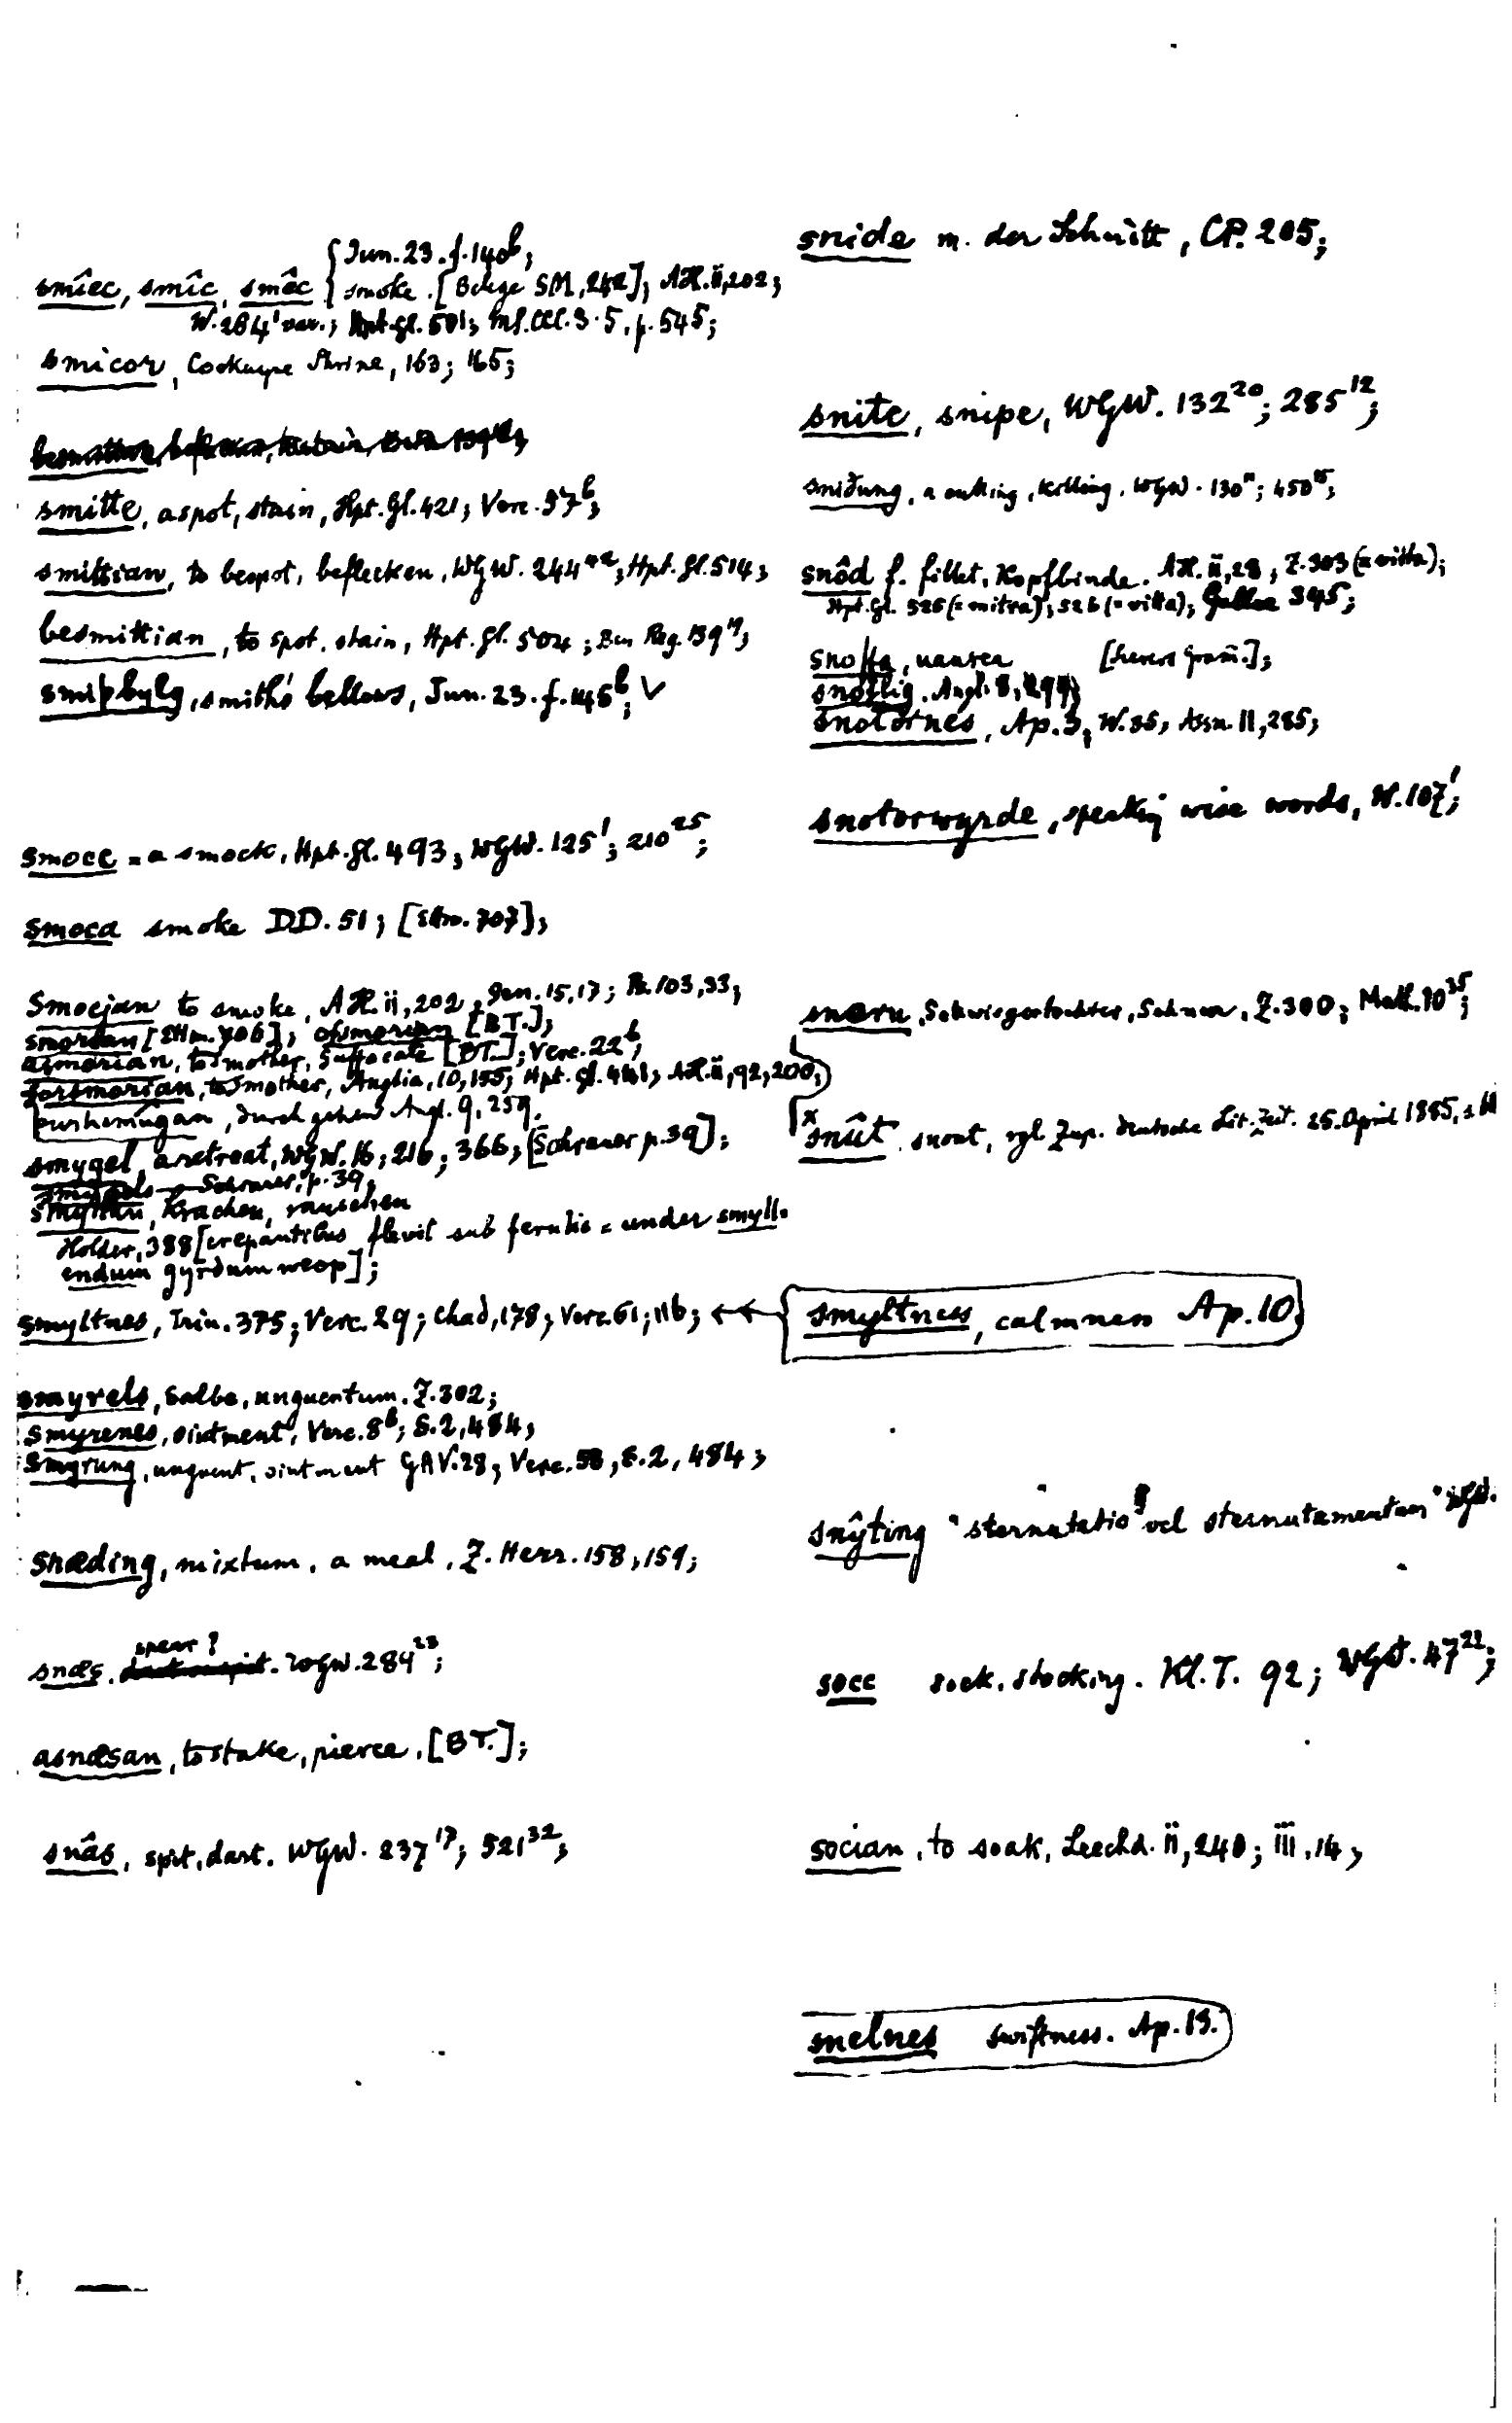 smîec, smîc, smêc { Jun. 23. f. 140b;
smoke. [Belege SM, 242]; AH. ii, 202;
W. 284¹ var.; Hpt. Gl. 501; p. 545;
smicor, Cockayne Shrine, 163; 165;
smitte, a spot, stain, Hpt. Gl. 421; Verc. 57b;
smittian, to bespot, beflecken, WGW. 244⁴²; Hpt. Gl. 514;
besmittian, to spot, stain, Hpt. Gl. 504; Ben Reg. 139¹⁹;
smiþbylg, smith's bellows, Jun. 23. f. 145b; V
smocc = a smock, Hpt. Gl. 493; WGW. 125¹; 210²⁵;
smoca smoke DD. 51; [Ettm. 707];
Smocian to smoke, AH. ii, 202, Gen. 15,17; Ps. 103,33;
smorian [Ettm. 706]; ofsmorian [BT.];
asmorian, to smother, suffocate [BT.]; Verc. 22b;
forsmorian, to smother, Anglia, 10, 155; Hpt. Gl. 441; AH. ii, 92, 200;
þurhsmûgan, durchgehen Angl. 9, 259.
smygel, a retreat, WGW. 16; 216; 366; [Schrauer p. 39];
smygels Schrauer, p. 39;
smyllan, krachen, rauschen
Holder, 388 [crepantibus flevit sub ferulis = under smyll-
endum gyrdum weop];
smyltnes, Trin. 375; Verc. 29; Chad, 178; Verc. 61; 116;
smyrels, Salbe, unguentum. Z. 302;
smyrenes, ointment, Verc. 8b; S. 2, 484;
smyrung, unguent, ointment GAV. 28; Verc. 58, S. 2, 484;
snæding, mixtum, a meal, Z. Herr. 158, 159;
spear?
snæs. WGW. 284²³;
asnæsan, to stake, pierce, [BT.];
snâs, spit, dart. WGW. 237¹⁷; 521³²;
snide m. der Schnitt, CP. 205;
snite, snipe, WGW. 132²⁰; 285¹²;
sniðung, a cutting, killing, WGW. 130¹¹; 450¹⁵;
snôd f. fillet, Kopfbinde. AH. ii, 28; Z. 303 (= vitta);
Hpt. Gl. 526 (= mitra); 526 (= vitta); Gallee 345;
snoffa, nausea
snoflig. Angl. 8,
snotornes, Ap. 3, W. 35, Assm. 11, 285;
snotorwyrde, speaking wise words, W. 107¹;
snoru, Schwiegertochter, Schnur, Z. 300; Matt. 10³⁵;
*snût snout, vgl. Zup. deutsche Lit. Zeit. 25. April 1885,
smyltness, calmness Ap. 10.
snŷting "sternutatio vel sternutamentum" WGW.
socc sock, stocking. Kl. T. 92; WGW. 47²²;
socian, to soak, Leechd. ii, 240; iii, 14;
snelnes swiftness. Ap. 13.